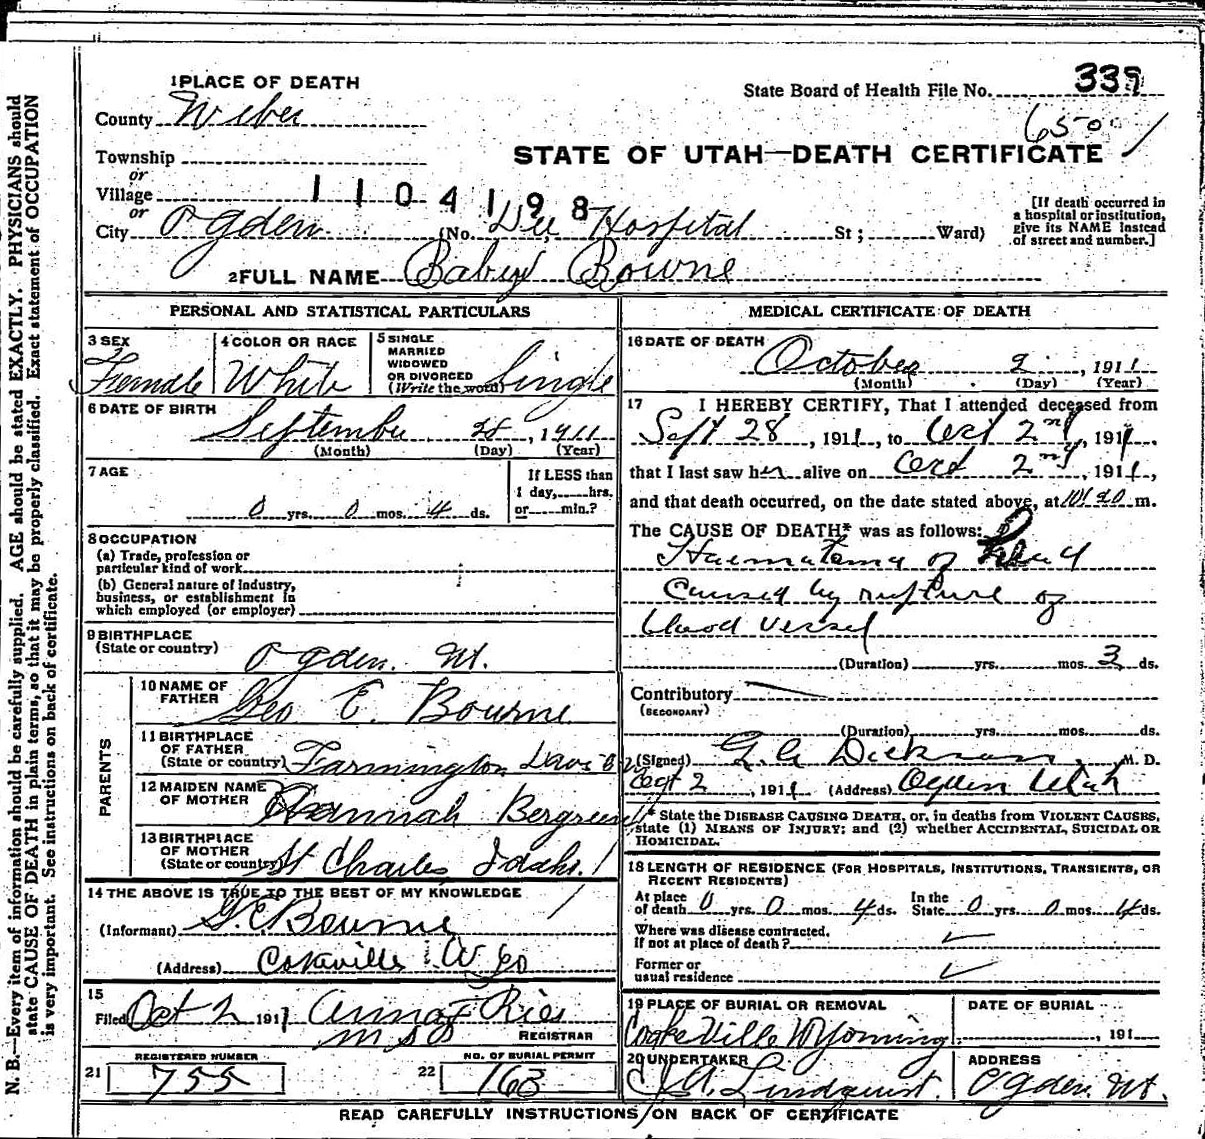 1 PLACE OF DEATH
State Board of Health File No. 339
County Weber
6500
Township
STATE OF UTAH—DEATH CERTIFICATE
or
Village
1104198
or
City Ogden (No. Dee Hospital St; Ward)
[If death occurred in a hospital or institution, give its NAME instead of street and number.]
2 FULL NAME Baby Bowne
PERSONAL AND STATISTICAL PARTICULARS
3 SEX Female
4 COLOR OR RACE White
5 SINGLE MARRIED WIDOWED OR DIVORCED (Write the word) Single
6 DATE OF BIRTH September 28, 1911
(Month) (Day) (Year)
7 AGE
0 yrs. 0 mos. 4 ds.
If LESS than 1 day, hrs. or min.?
8 OCCUPATION
(a) Trade, profession or particular kind of work
(b) General nature of industry, business, or establishment in which employed (or employer)
9 BIRTHPLACE (State or country) Ogden. Ut.
PARENTS
10 NAME OF FATHER Geo E. Bourne
11 BIRTHPLACE OF FATHER (State or country) Farmington Davis
12 MAIDEN NAME OF MOTHER Hannah Bergreen
13 BIRTHPLACE OF MOTHER (State or country) St Charles Idaho.
14 THE ABOVE IS TRUE TO THE BEST OF MY KNOWLEDGE
(Informant) G. E. Bourne
(Address) Cokeville Wyo
15 Filed Oct 2 1911 Anna F Ries
REGISTRAR
REGISTERED NUMBER
21 755
NO. OF BURIAL PERMIT
22 163
MEDICAL CERTIFICATE OF DEATH
16 DATE OF DEATH October 2, 1911
(Month) (Day) (Year)
17 I HEREBY CERTIFY, That I attended deceased from
Sept 28, 1911, to Oct 2nd, 1911,
that I last saw her alive on Oct 2nd, 1911,
and that death occurred, on the date stated above, at 10:20 m.
The CAUSE OF DEATH* was as follows:
Haematoma of Head
Caused by rupture of
blood vessel
(Duration) yrs. mos. 3 ds.
Contributory
(SECONDARY)
(Duration) yrs. mos. ds.
(Signed) G. A. Dickson, M. D.
Oct 2, 1911 (Address) Ogden Utah
* State the DISEASE CAUSING DEATH, or, in deaths from VIOLENT CAUSES, state (1) MEANS OF INJURY; and (2) whether ACCIDENTAL, SUICIDAL OR HOMICIDAL.
18 LENGTH OF RESIDENCE (FOR HOSPITALS, INSTITUTIONS, TRANSIENTS, OR RECENT RESIDENTS)
At place of death 0 yrs. 0 mos. 4 ds. In the State 0 yrs. 0 mos. 4 ds.
Where was disease contracted, If not at place of death?
Former or usual residence
19 PLACE OF BURIAL OR REMOVAL
Cooke Ville Wyoming
DATE OF BURIAL
, 191
20 UNDERTAKER
Lindquist.
ADDRESS
Ogden. Ut.
READ CAREFULLY INSTRUCTIONS ON BACK OF CERTIFICATE
N. B.—Every item of information should be carefully supplied. AGE should be stated EXACTLY. PHYSICIANS should
state CAUSE OF DEATH in plain terms, so that it may be properly classified. Exact statement of OCCUPATION
is very important. See instructions on back of certificate.